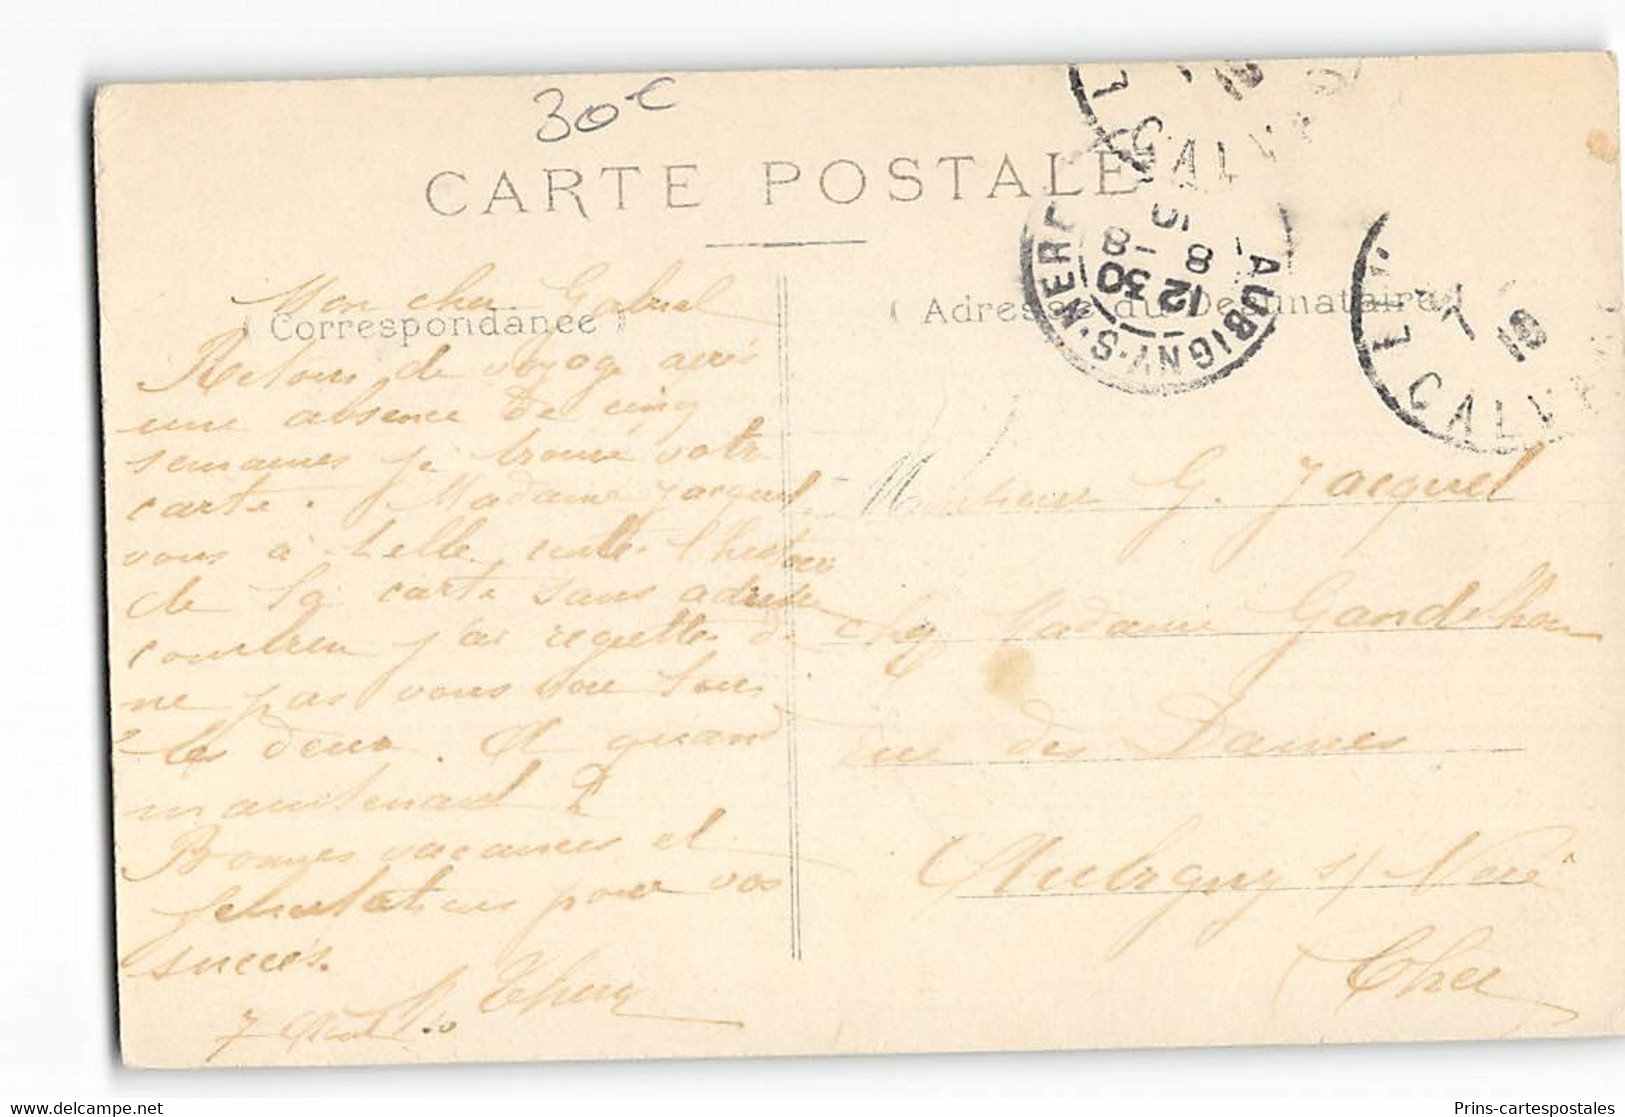 30 c
CARTE POSTALE
( Correspondance )
( Adresse du Destinataire
AUBIGNY-S-NERE
12 30
8 - 8
10
CALVA
CALVA
Mon cher Gabriel
Retour de voyage après
une absence de cinq
semaines je trouve votre
carte. Madame Jacquel
vous a-t-elle conté l'histoire
de la carte sans adresse
combien j'ai regretté de
ne pas vous voir tous
les deux. Et quand
maintenant ?
Bonnes vacances et
félicitations pour vos
succès.
7 Août 10
Monsieur G. Jacquel
chez Madame Gandilhon
rue des Dames
Aubigny s/ Nère
Cher
Prins-cartespostales.com